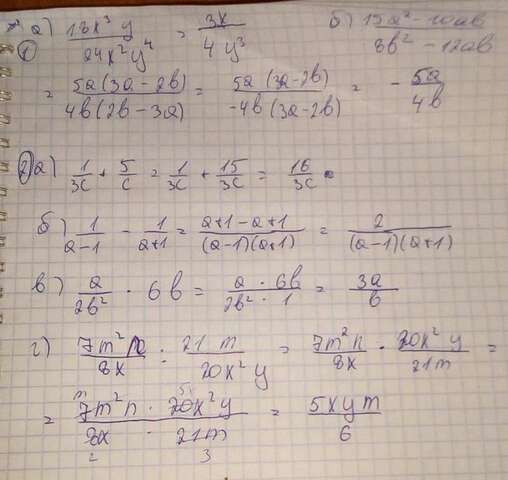 ① а) 18x³y / 24x²y⁴ = 3x / 4y³ б) 15a² - 10ab / 8b² - 12ab
= 5a(3a - 2b) / 4b(2b - 3a) = 5a(3a - 2b) / -4b(3a - 2b) = - 5a / 4b
② а) 1/3c + 5/c = 1/3c + 15/3c = 16/3c
б) 1/a-1 - 1/a+1 = a+1-a+1 / (a-1)(a+1) = 2 / (a-1)(a+1)
в) a/2b² · 6b = a · 6b / 2b² · 1 = 3a/b
г) 7m²n / 8x : 21m / 20x²y = 7m²n / 8x · 20x²y / 21m =
= 7m²n · 20x²y / 8x · 21m = 5xym / 6